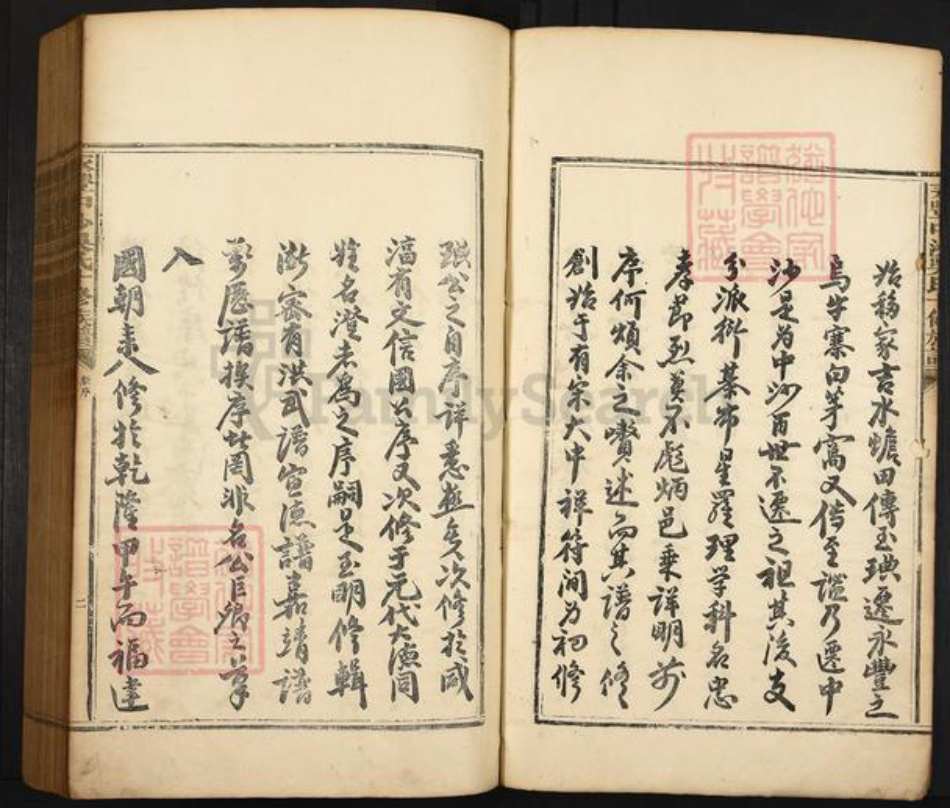 始移家吉水爊田傳玉琠遷永豐之
烏牛寨向芽窩又傳至謐乃遷中
沙是為中沙百世不遷之祖其後支
分派衍棊布星羅理学科名忠
孝節烈莫不彪炳邑乗詳明前
序何煩余之贅述而其譜之修
創始于有宋大中祥符间为初修
琠公之自序詳悉無矣次修於咸
淳有文信國公序又次修于元代大德间
姓名澄者爲之序嗣是玉明修輯
渐密有洪武譜宣德譜嘉靖譜
萬歷譜撰序皆罔非名公巨卿之筆
入
國朝来八修於乾隆甲午而福建
FamilySearch